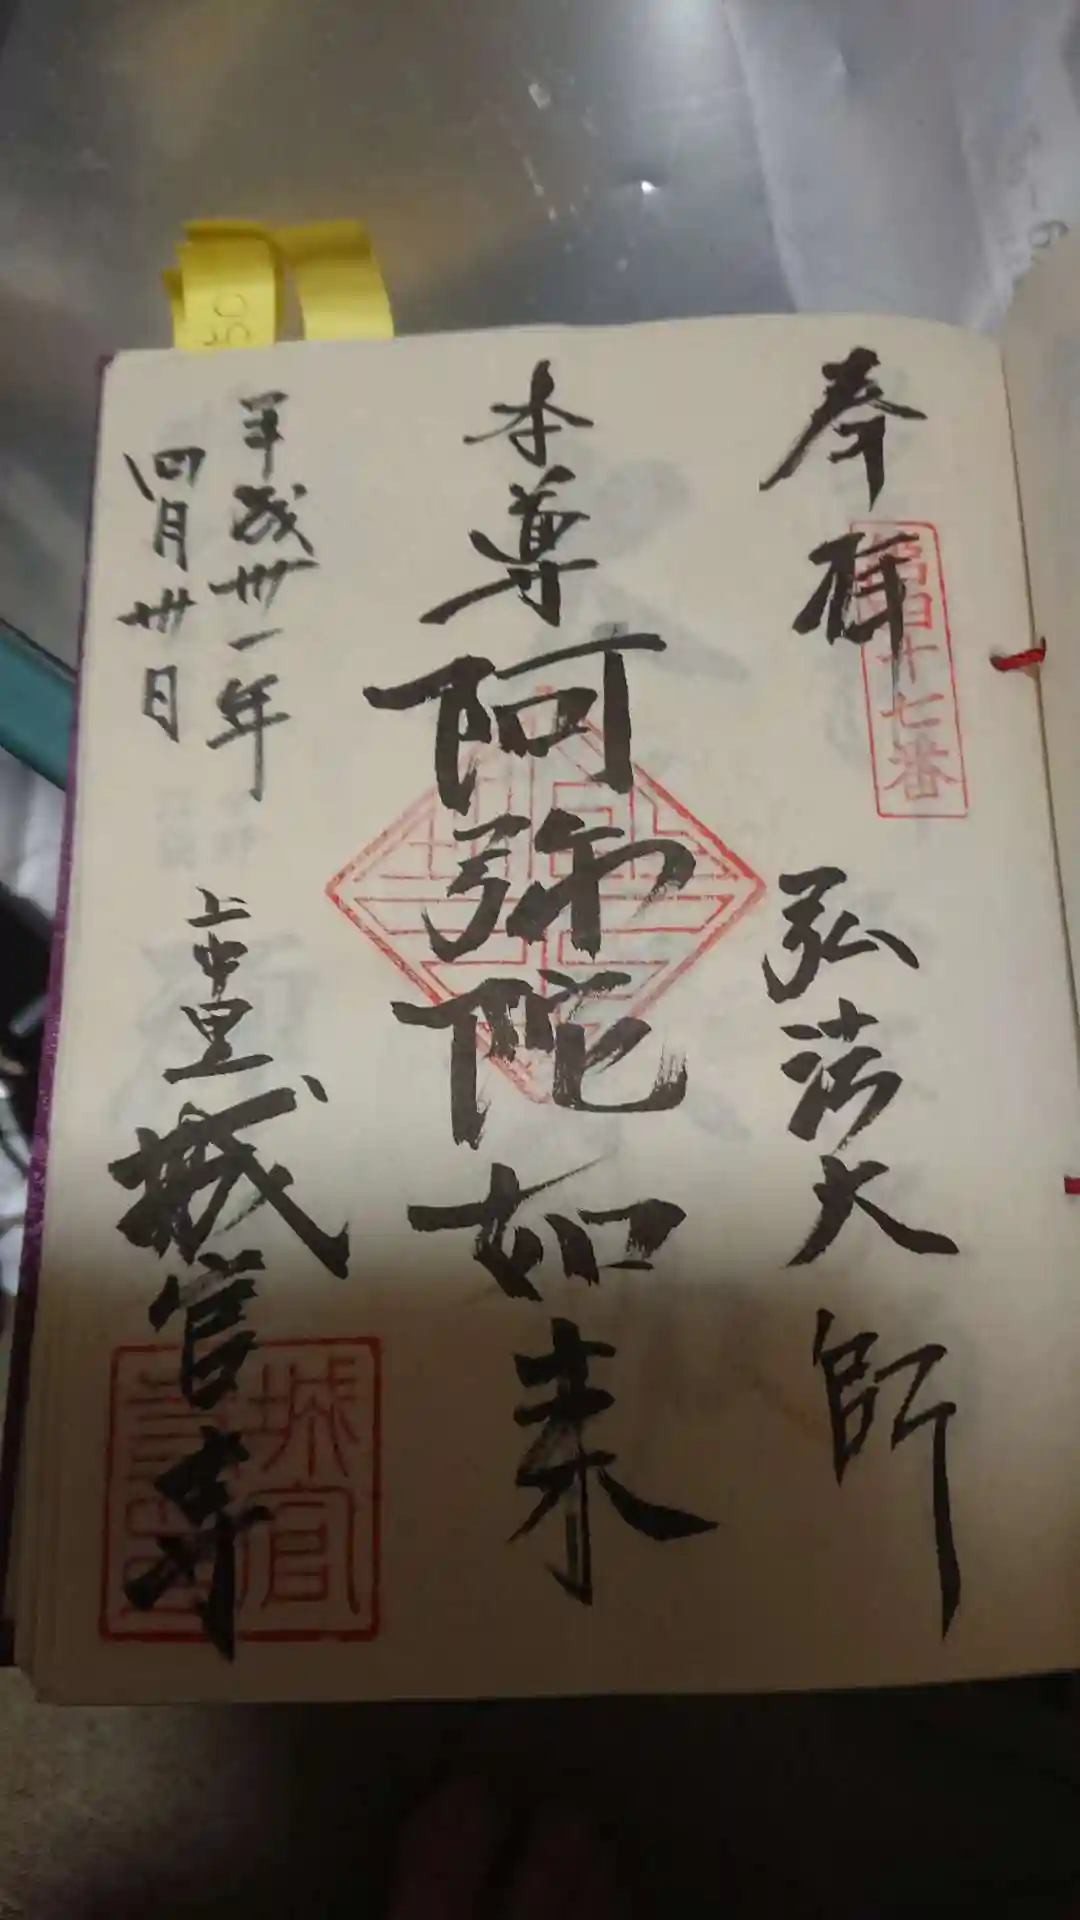 奉拝
第四十七番
弘法大師
本尊
阿弥陀如来
平成卅一年
四月卅日
上中里
城官寺
城官
50
6